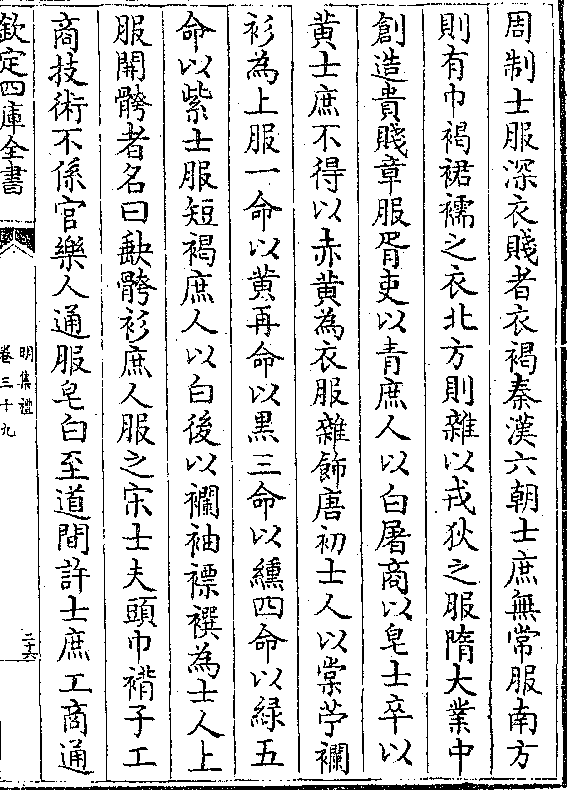 周制士服深衣賤者衣褐秦漢六朝士庶無常服南方
則有巾褐裙襦之衣北方則雜以戎狄之服隋大業中
創造貴賤章服胥吏以青庶人以白屠商以皂士卒以
黄士庶不得以赤黄為衣服雜飾唐初士人以棠苧襴
衫為上服一命以黄再命以黒三命以纁四命以緑五
命以紫士服短褐庶人以白後以襴袖褾襈為士人上
服開骻者名曰缺骻衫庶人服之宋士夫頭巾褙子工
商技術不係官樂人通服皂白至道間許士庶工商通
欽定四庫全書
明集禮
卷三十九
二十六